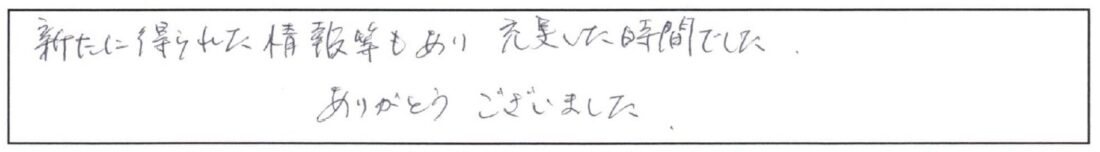 新たに得られた情報等もあり 充実した時間でした.
ありがとう ございました.